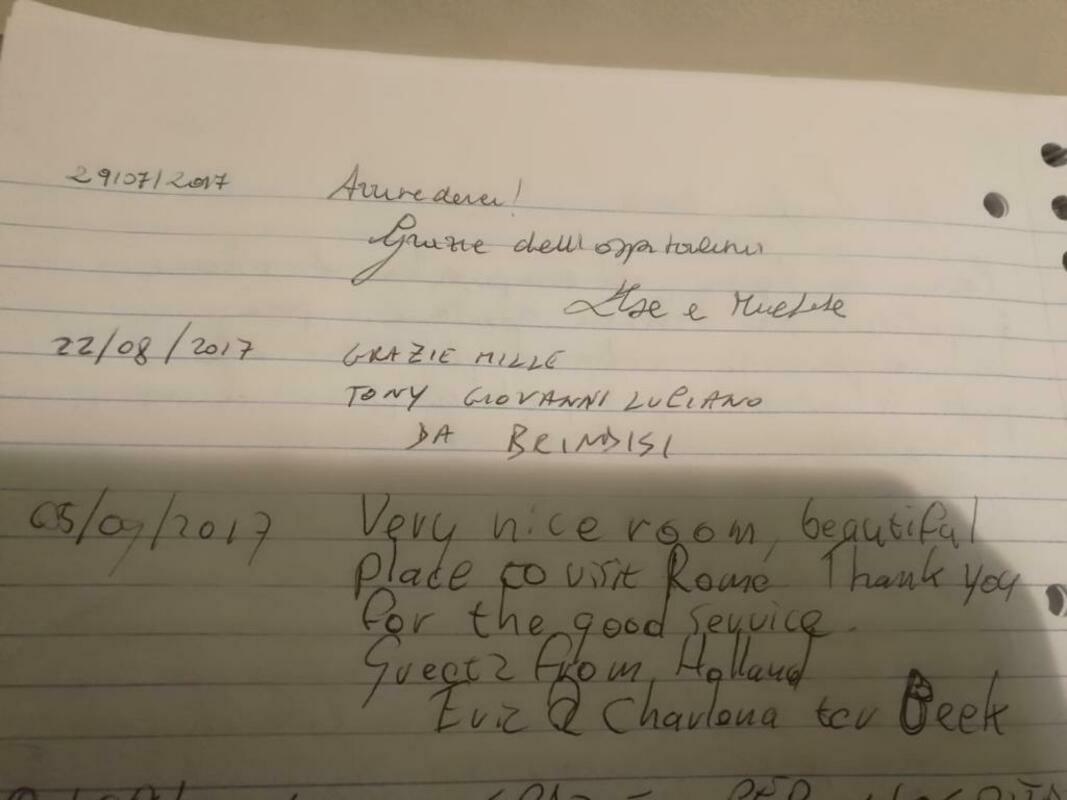 29/07/2017 Arrivederci!
Grazie dell'ospitalità
Ilse e
22/08/2017 GRAZIE MILLE
TONY GIOVANNI LUCIANO
DA BRINDISI
05/09/2017 Very nice room, beautiful
place to visit Rome Thank you
for the good service.
Guests from Holland
Eric & Charlona ter Beek